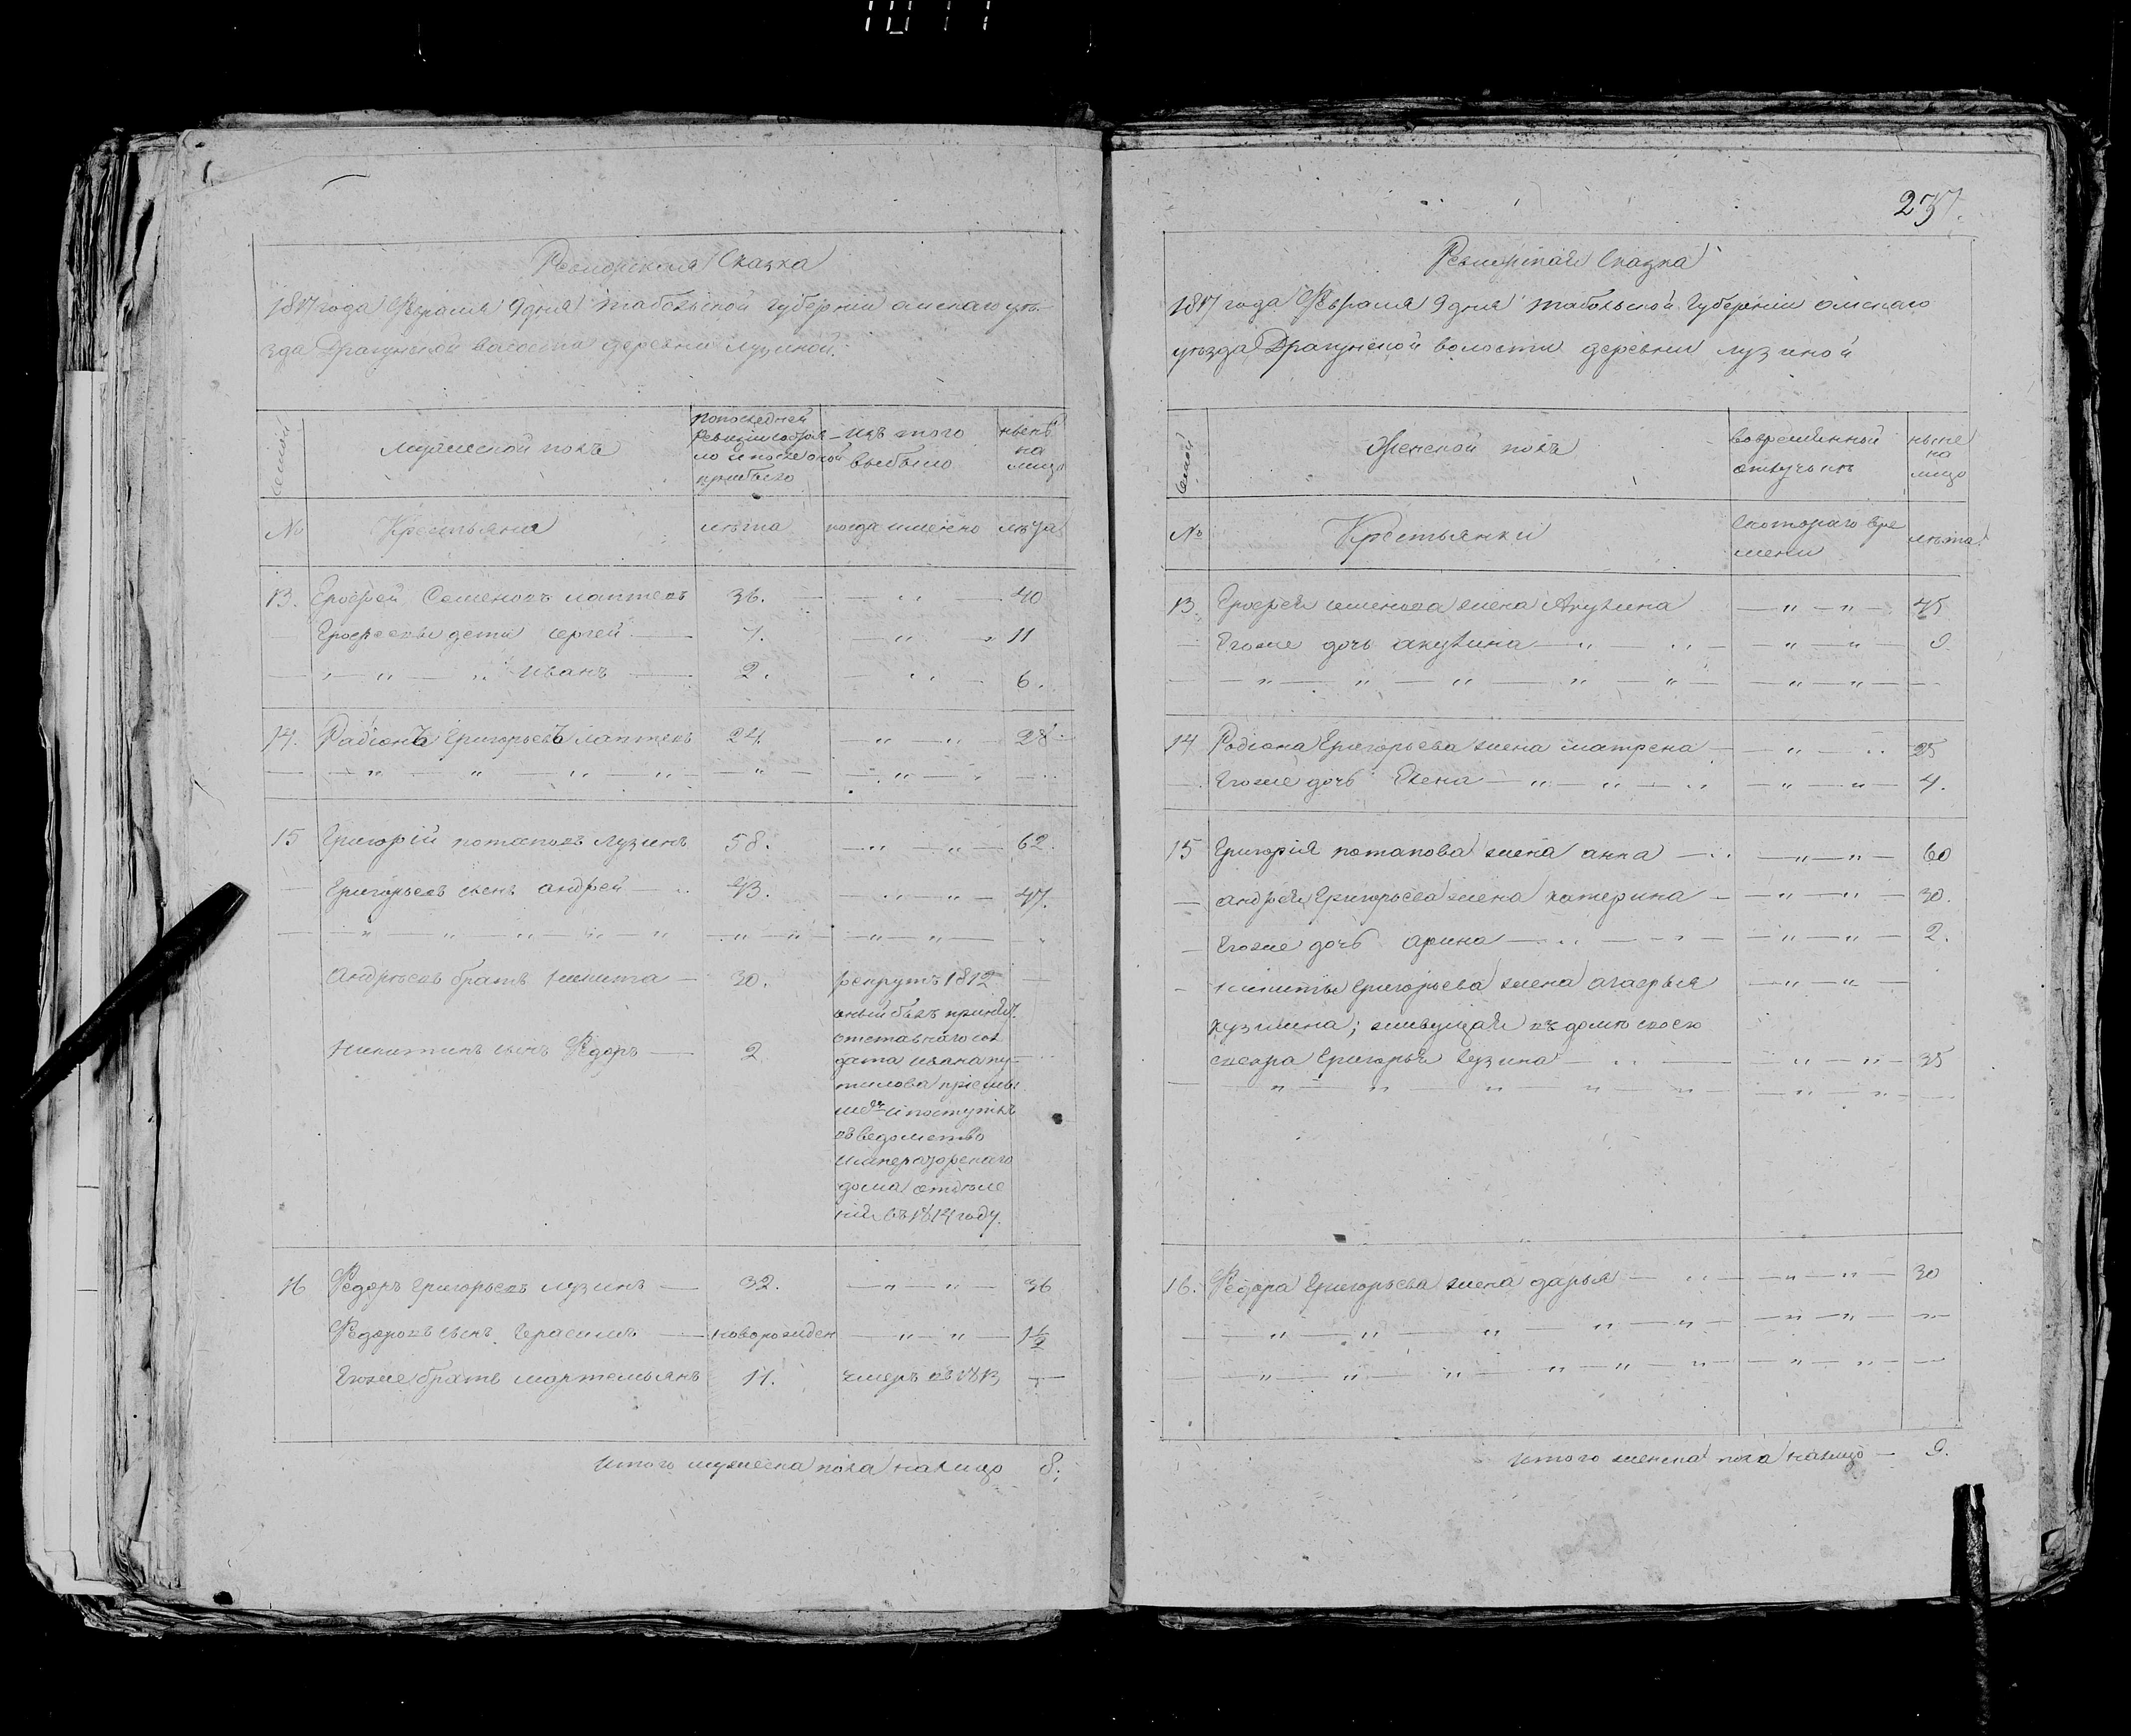 Ревижская Сказка
1817 года Февраля 9 дня Табольской губернии омскаго уѣ-
зда Драгунской валости деревни лузиной.
семьи
мужеской полъ
попоследней
ревизии состоя-
ло и после оной
прибыло
изъ того
выбыло
ныне
на
лицо
№
Крестьяна
лѣта
когда именно
лѣта
13. Ерофей Семеновъ лаптевъ 36. — „ — 40
Ерофеевы дети сергей 7. — „ — 11
— „ — „ иванъ 2. — „ — 6.
14. Радіонъ Григорьевъ лаптевъ 24. — „ — „ 28
15 Григорій потаповъ лузинъ 58. — „ — „ — 62.
Григорьевъ сынъ андрей — 43. — „ — „ — 47.
Андрѣевъ братъ никита — 30. рекрутъ 1812 —
Никитинъ сынъ Федоръ — 2
оный былъ принят.
отставнаго сол
дата ивана пу-
тилова
и поступилъ
въ ведомство
императорскаго
дома отдѣле
ній въ 1814 году.
16 Федоръ григорьевъ лузинъ — 32. — „ — „ — 36
Федоровъ сынъ Герасимъ — новорожден — „ — „ — 1½
Егоже братъ мартемьянъ 11. умеръ въ 1813 —
Итого мужеска пола налицо 8;
237.
Ревижская Сказка
1817 года Февраля 9 дня Табольской Губернии омскаго
уѣзда Драгунской волости деревни лузиной
семьи
Женской полъ
вовременной
отлучькѣ
ныне
на
лицо
№
Крестьянки
скотораго вре
мени
лѣта
13. Ерофея семенова жена Акулина — „ — „ — 45
Егоже дочь акулина — „ — „ — „ — „ — 9.
14 Родіона Григорьева жена матрена — „ — „ 25
Егоже дочь Елена — „ — „ — „ — „ — „ — 4.
15 Григорія потапова жена анна — „ — „ — 60
андрея Григорьева жена катерина — „ — „ — 30.
Егоже дочь арина — „ — „ — „ — „ — 2.
никиты Григорьева жена агафья — „ — „ —
кузмина; живущая въ домѣ своего
свекра Григорья лузина — „ — „ — „ — 35
16. Федора Григорьева жена дарья — „ — „ — „ — 30
Итого женска пола налицо — 9.